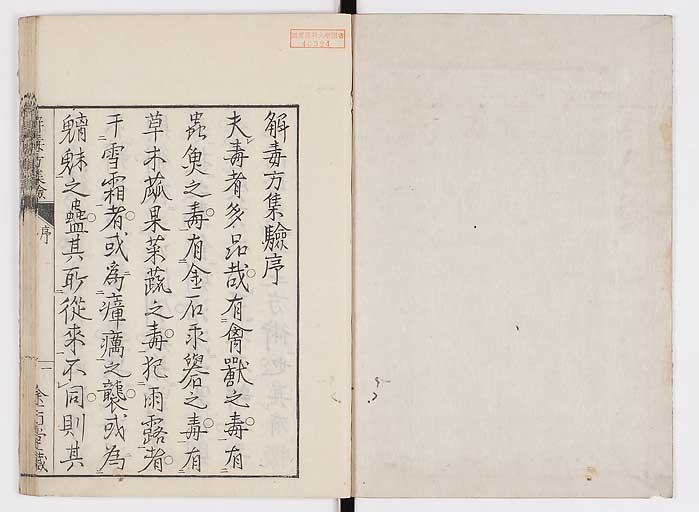 解毒方集驗序
夫毒者多品哉有禽獸之毒有
蟲魚之毒有金石永礜之毒有
草木蓏果菜蔬之毒犯雨露者
干雪霜者或為瘴癘之襲或為
魑魅之蠱其所從來不同則其
序
一
40324